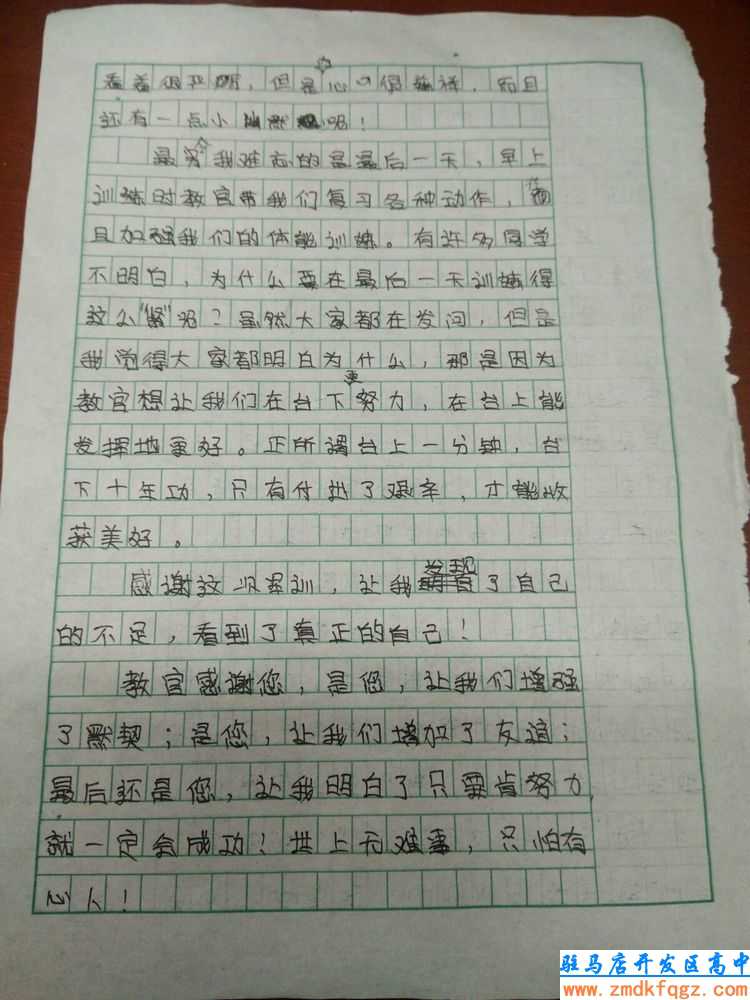 看着很严厉，但是心口很慈祥，而且
还有一点小幽默呢！
最令我难忘的是最后一天，早上
训练时教官带我们复习各种动作，而
且加强我们的体能训练。有许多同学
不明白，为什么要在最后一天训练得
这么“紧”呢？虽然大家都在发问，但是
我觉得大家都明白为什么，那是因为
教官想让我们在台下更努力，在台上能
发挥地更好。正所谓台上一分钟，台
下十年功，只有付出了艰辛，才能收
获美好。
感谢这次军训，让我发现了自己
的不足，看到了真正的自己！
教官感谢您，是您，让我们增强
了默契；是您，让我们增加了友谊；
最后还是您，让我明白了只要肯努力，
就一定会成功！世上无难事，只怕有
心人！
驻马店开发区高中
www.zmdkfqgz.com